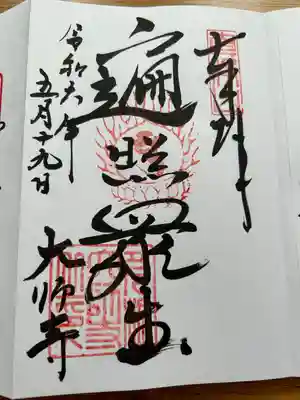 奉拝
遍照衆生
令和六年
五月十九日
大師寺